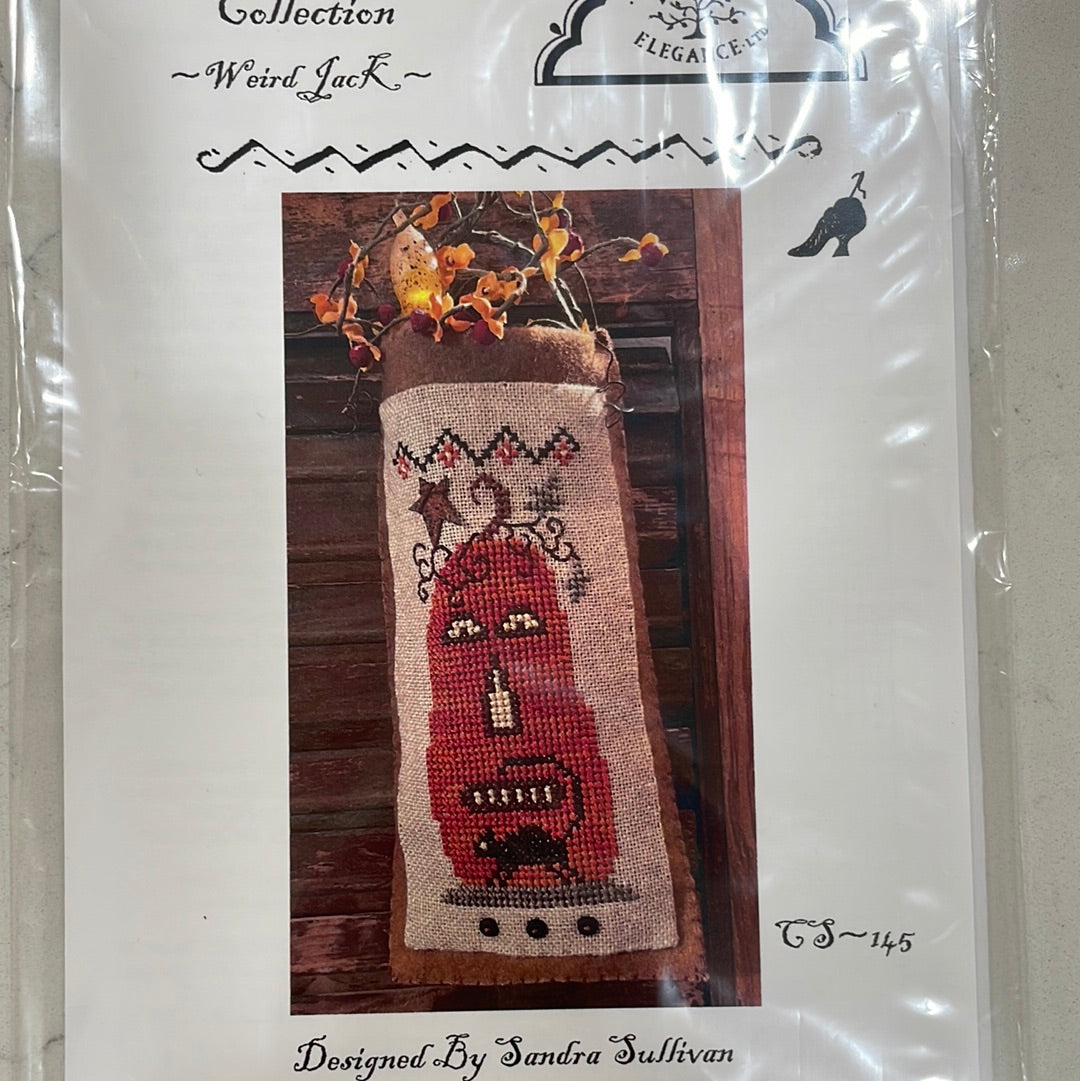 Collection
ELEGANCE·LTD
~Weird Jack~
CS~145
Designed By Sandra Sullivan